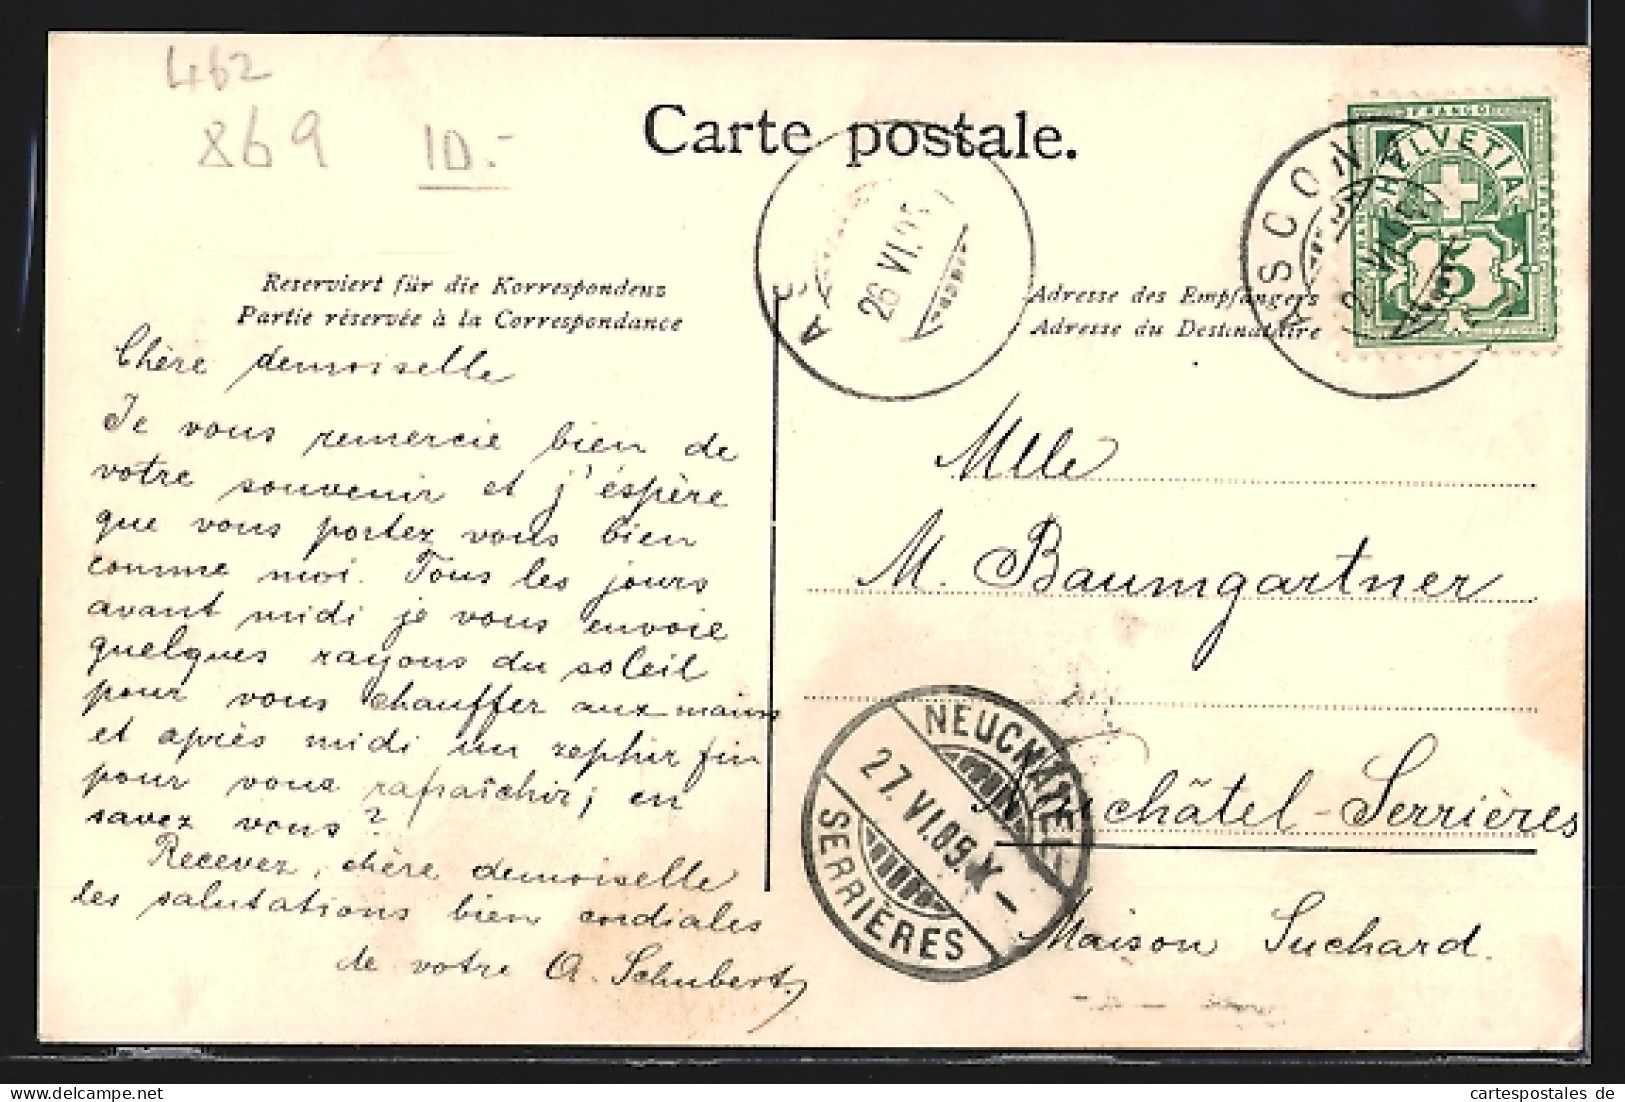 462
869 10.-
Carte postale.
ASCONA
FRANCO
HELVETIA
5
26 VI.05
Reserviert für die Korrespondenz
Partie réservée à la Correspondance
Adresse des Empfängers
Adresse du Destinataire
Chère demoiselle
Je vous remercie bien de
votre souvenir et j'éspère
que vous portez vous bien
comme moi. Tous les jours
avant midi je vous envoie
quelques rayons du soleil
pour vous chauffer aux mains
et après midi un zephir fin
pour vous rafraîchir; en
savez vous?
Recevez, chère demoiselle
les salutations bien cordiales
de votre A. Schubert.
Mlle
M. Baumgartner
Neuchâtel-Serrières
Maison Suchard.
NEUCHÂTEL
27.VI.05.X-
SERRIÈRES
cartespostales de